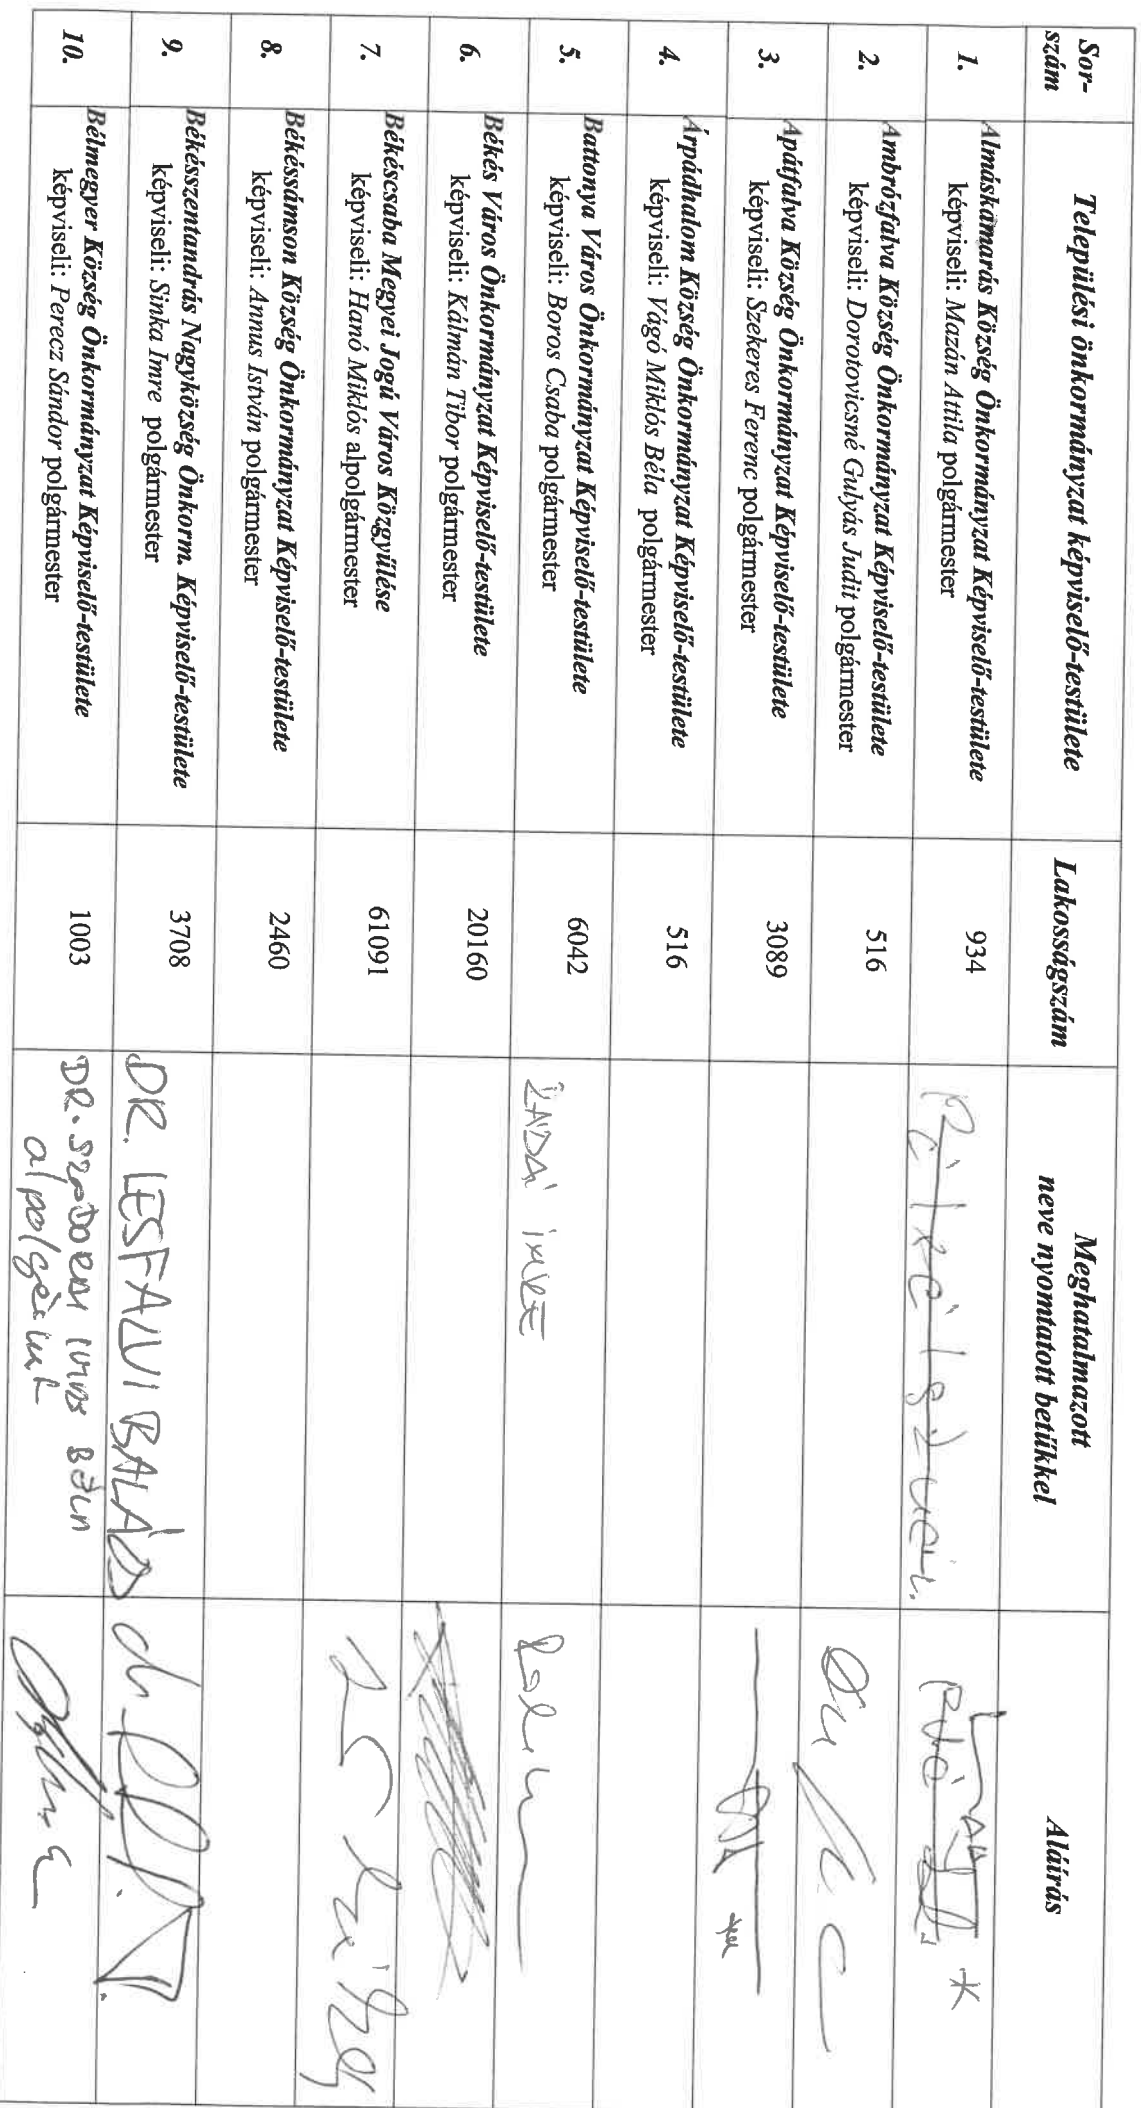 Sor-
szám
Települési önkormányzat képviselő-testülete
Lakosságszám
Meghatalmazott
neve nyomtatott betűkkel
Aláírás
1.
Almáskamarás Község Önkormányzat Képviselő-testülete
képviseli: Mazán Attila polgármester
934
2.
Ambrózfalva Község Önkormányzat Képviselő-testülete
képviseli: Dorotovicsné Gulyás Judit polgármester
516
3.
Apátfalva Község Önkormányzat Képviselő-testülete
képviseli: Szekeres Ferenc polgármester
3089
4.
Árpádhalom Község Önkormányzat Képviselő-testülete
képviseli: Vágó Miklós Béla polgármester
516
5.
Battonya Város Önkormányzat Képviselő-testülete
képviseli: Boros Csaba polgármester
6042
IMRE
6.
Békés Város Önkormányzat Képviselő-testülete
képviseli: Kálmán Tibor polgármester
20160
7.
Békéscsaba Megyei Jogú Város Közgyűlése
képviseli: Hanó Miklós alpolgármester
61091
8.
Békéssámson Község Önkormányzat Képviselő-testülete
képviseli: Annus István polgármester
2460
9.
Békésszentandrás Nagyközség Önkorm. Képviselő-testülete
képviseli: Sinka Imre polgármester
3708
DR. LESFALVI BALÁZS
10.
Bélmegyer Község Önkormányzat Képviselő-testülete
képviseli: Perecz Sándor polgármester
1003
DR.